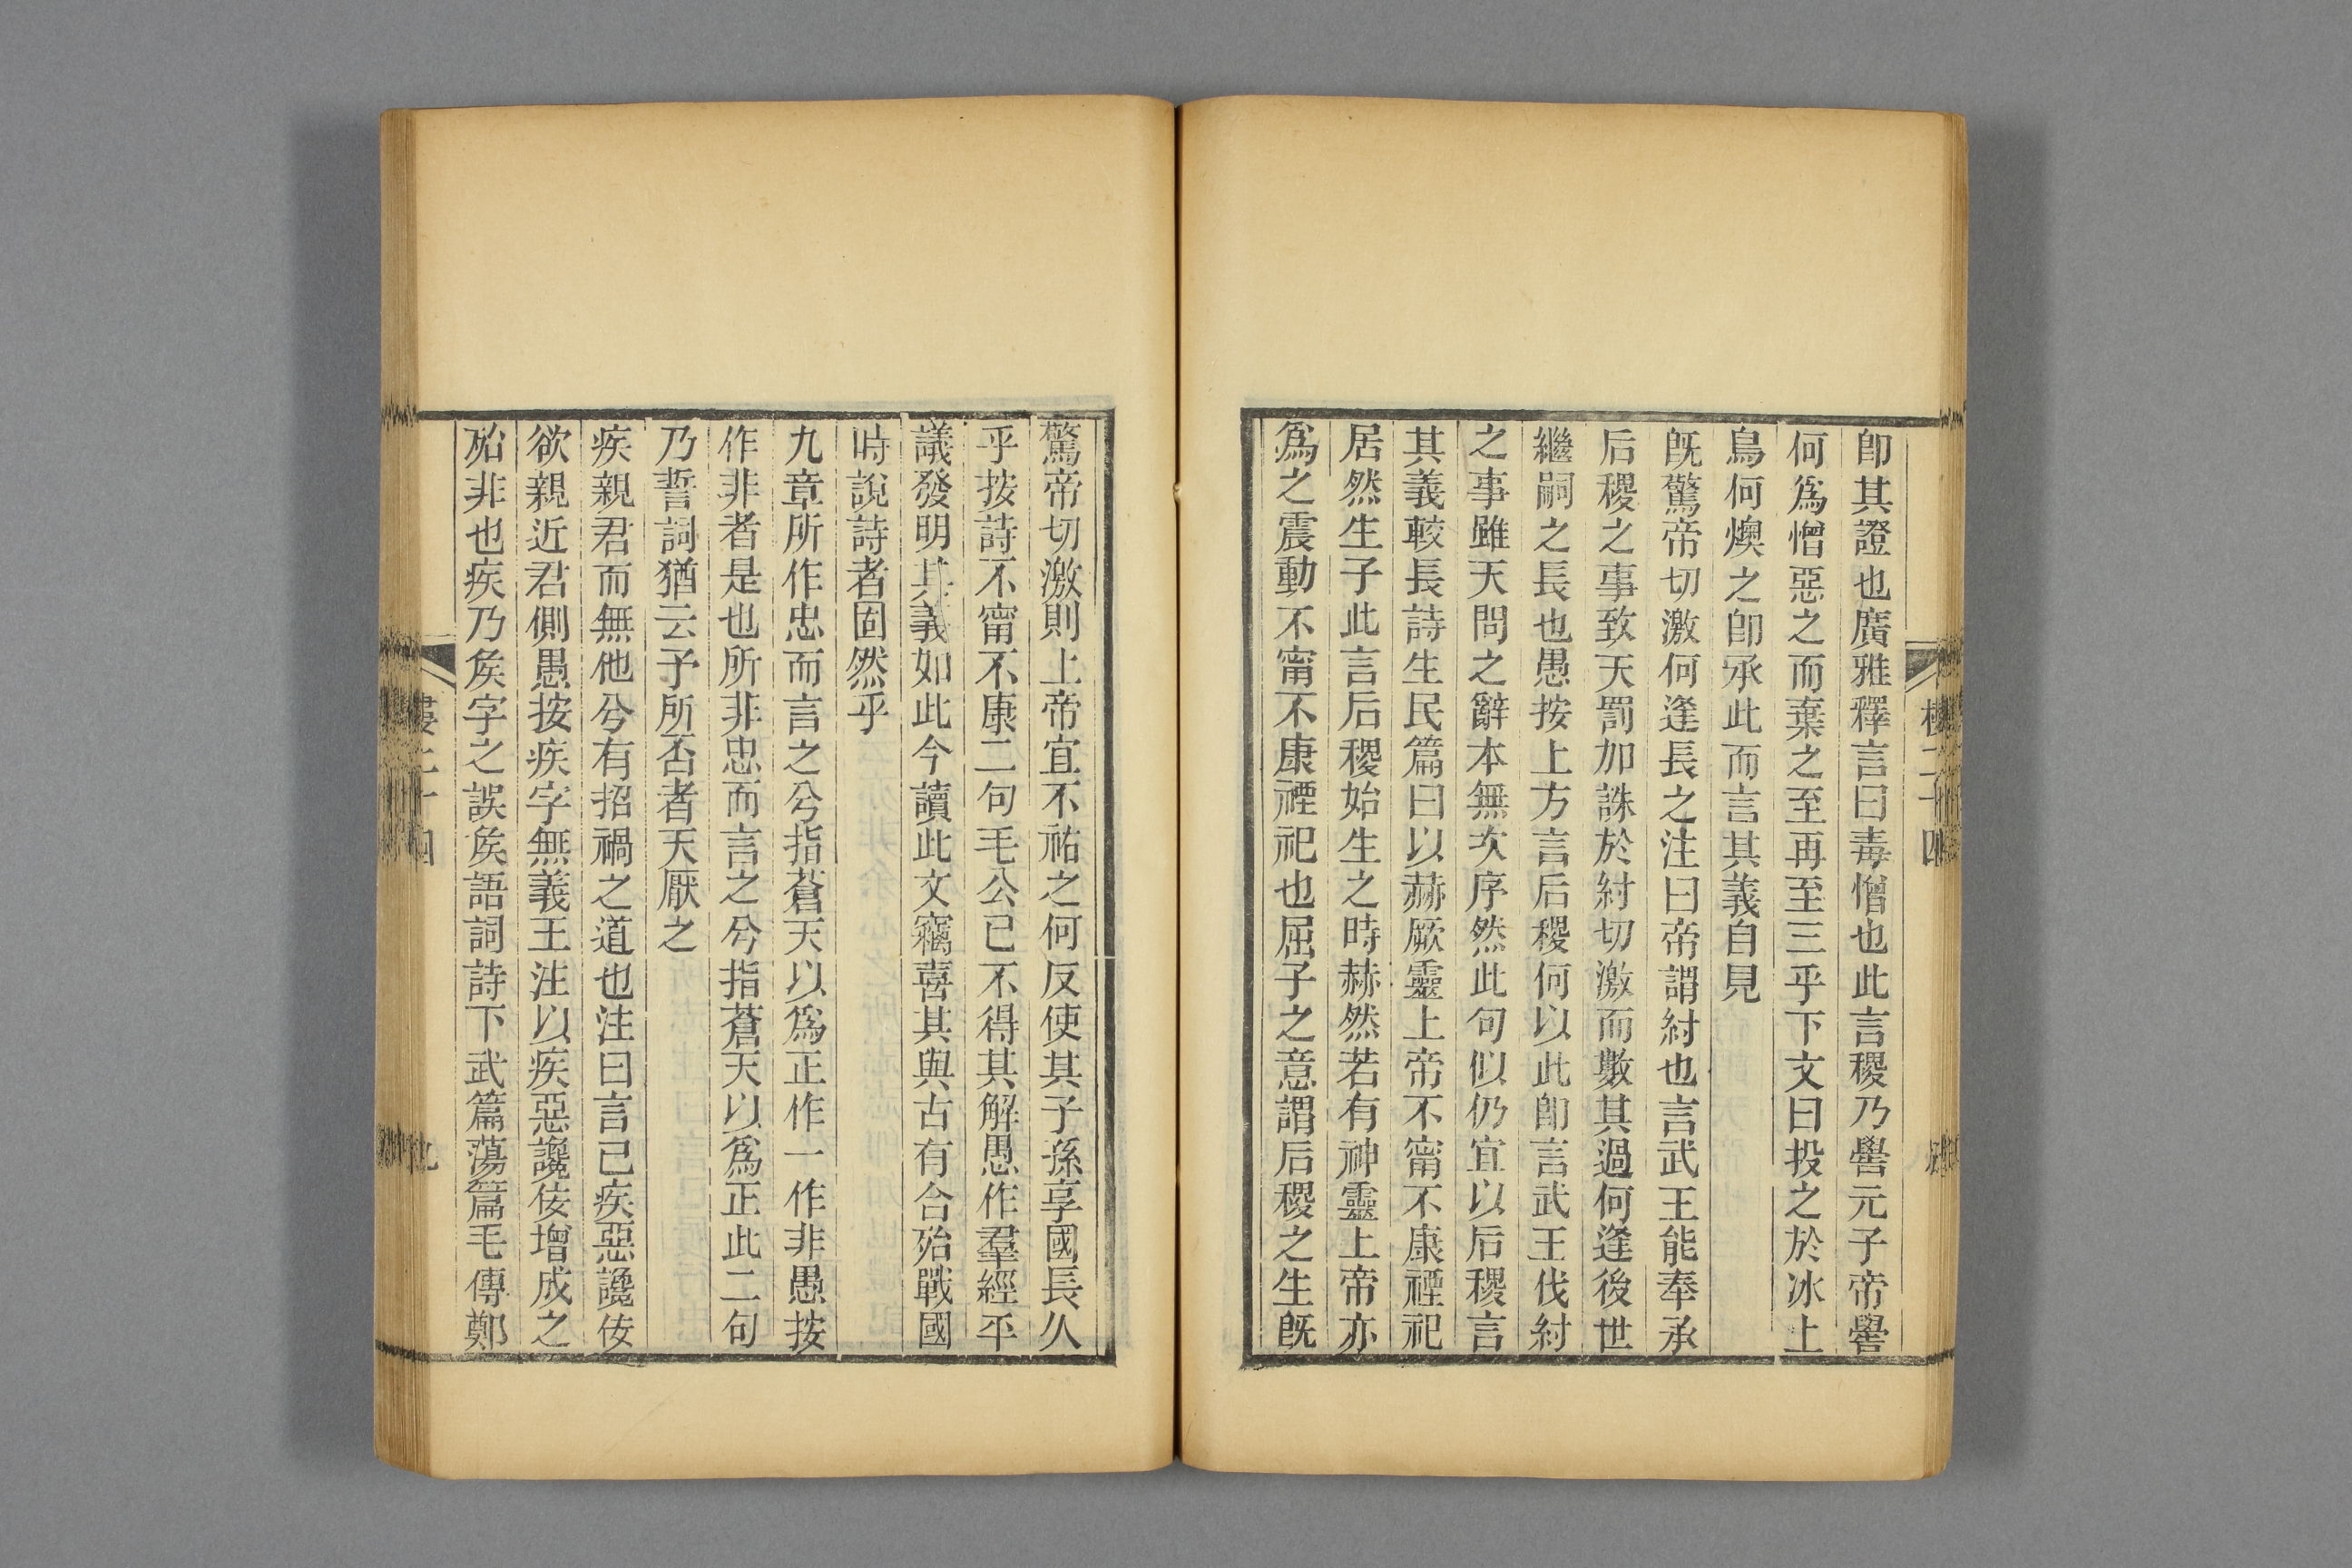 卽其證也廣雅釋言曰毒憎也此言稷乃嚳元子帝嚳
何爲憎惡之而棄之至再至三乎下文曰投之於冰上
鳥何燠之卽承此而言其義自見
旣驚帝切激何逢長之注曰帝謂紂也言武王能奉承
后稷之事致天罰加誅於紂切激而數其過何逢後世
繼嗣之長也愚按上方言后稷何以此卽言武王伐紂
之事雖天問之辭本無次序然此句似仍宜以后稷言
其義較長詩生民篇曰以赫厥靈上帝不甯不康禋祀
居然生子此言后稷始生之時赫然若有神靈上帝亦
爲之震動不甯不康禋祀也屈子之意謂后稷之生旣
驚帝切激則上帝宜不祐之何反使其子孫享國長久
乎按詩不甯不康二句毛公已不得其解愚作羣經平
議發明其義如此今讀此文竊喜其與古有合殆戰國
時說詩者固然乎
九章所作忠而言之兮指蒼天以爲正作一作非愚按
作非者是也所非忠而言之兮指蒼天以爲正此二句
乃誓詞猶云予所否者天厭之
疾親君而無他兮有招禍之道也注曰言己疾惡讒佞
欲親近君側愚按疾字無義王注以疾惡讒佞增成之
殆非也疾乃矦字之誤矦語詞詩下武篇蕩篇毛傳鄭
樓二十四